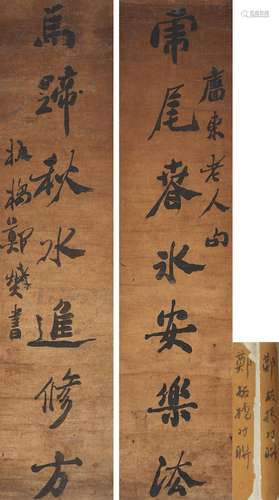 虎尾春冰安樂法
東老人句
馬蹄秋水進修方
板橋鄭燮書
鄭板橋对聯
鄭板橋对聯